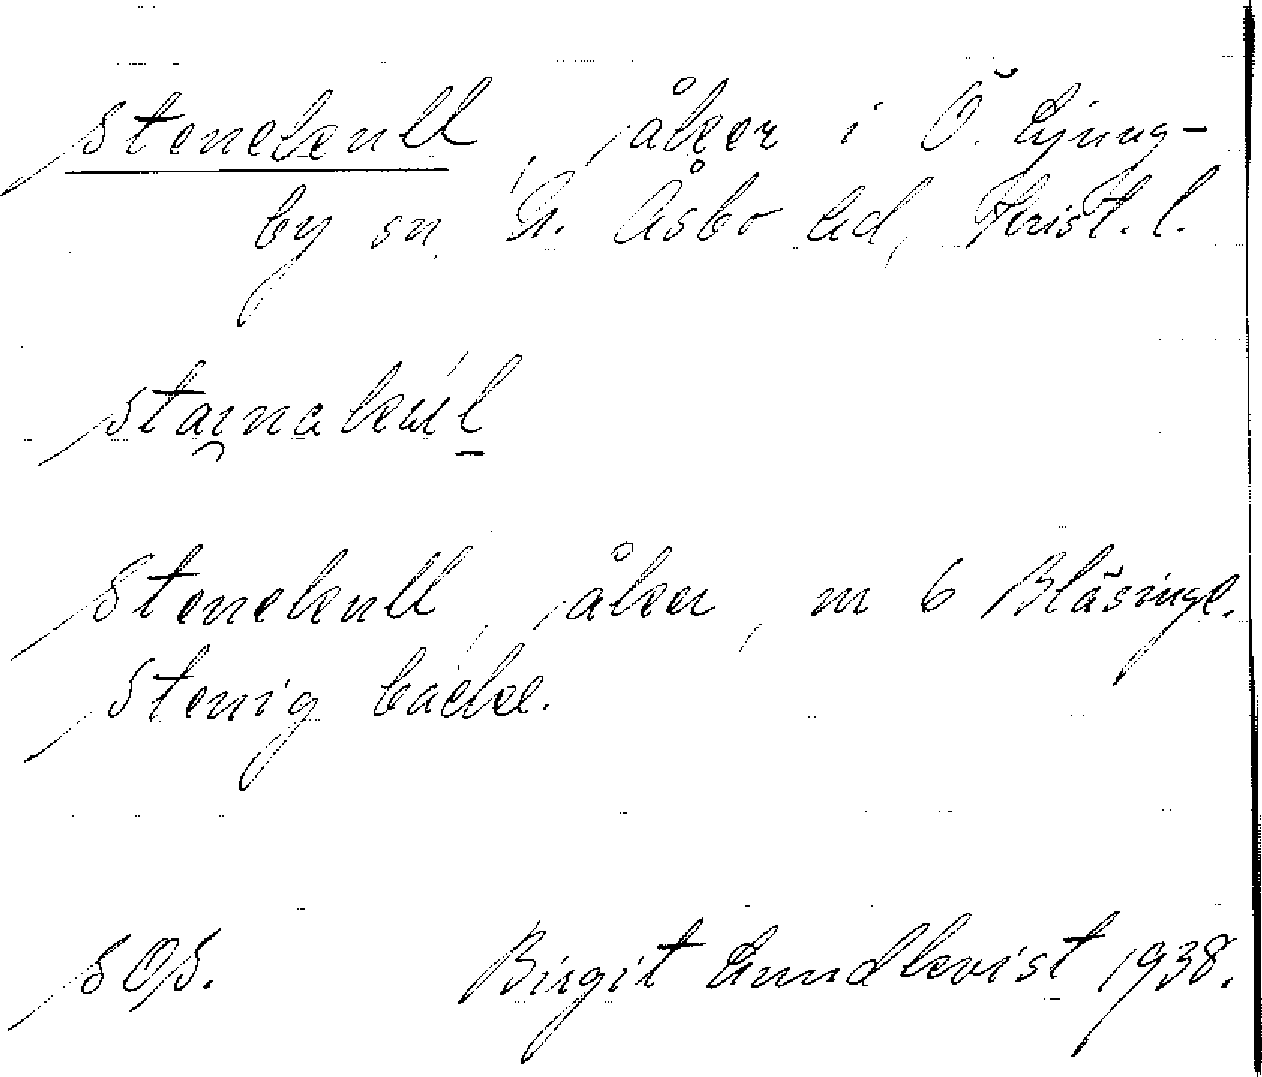 Stenekull, åker i Ö. Ljung-
by sn, N. Åsbo hd, Krist. l.
Stenekull, åker, m 6 Blåsinge.
Stenig backe.
SOS. Birgit Lundkvist 1938.